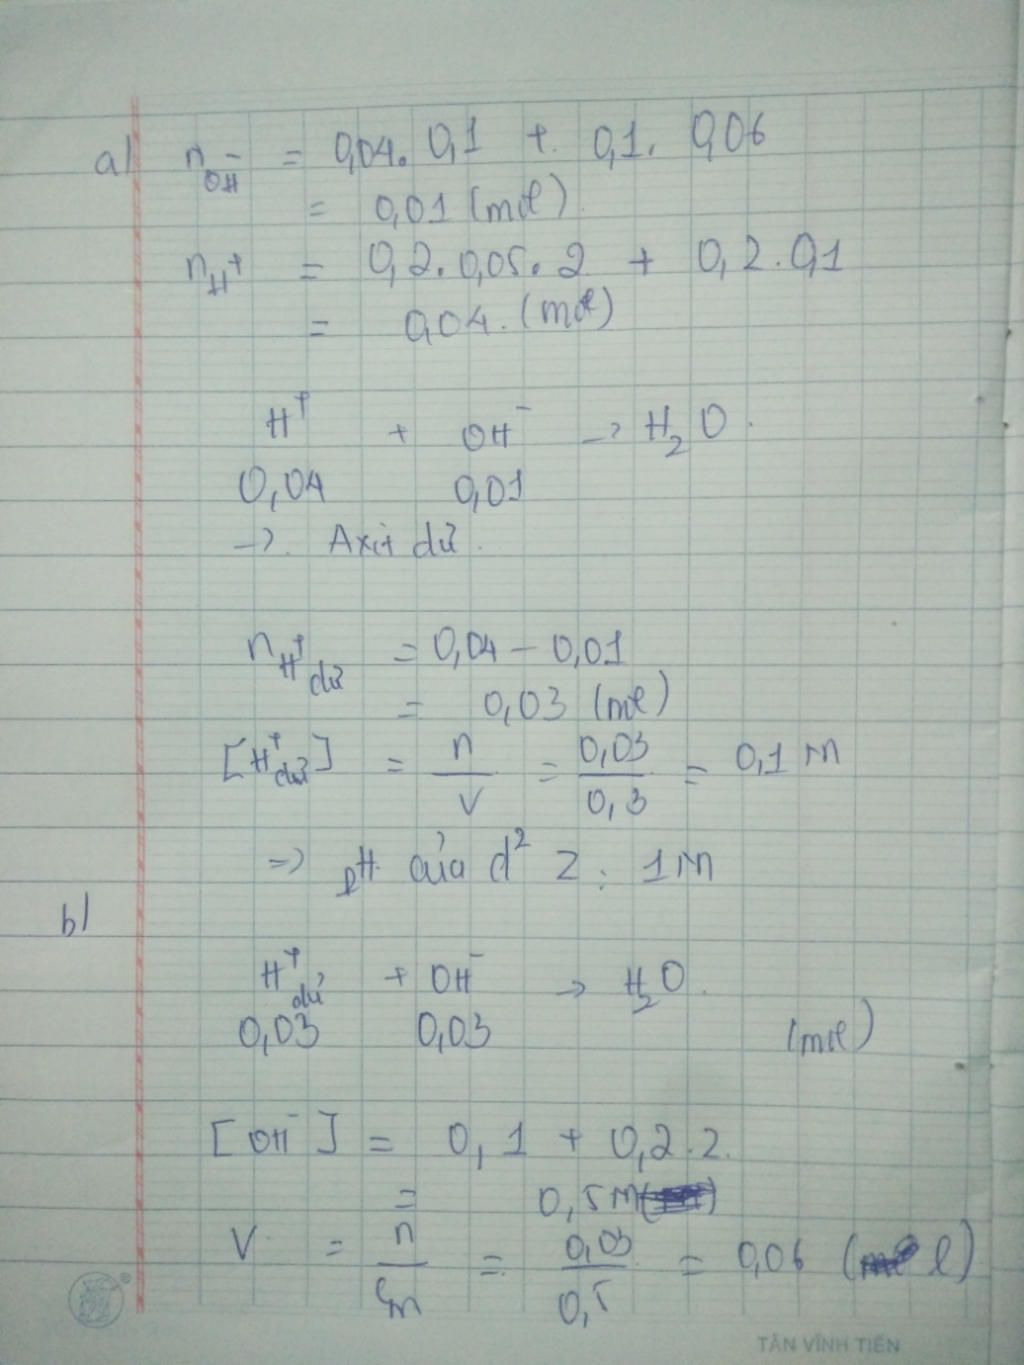 a) n OH⁻ = 0,04. 0,1 + 0,1. 0,06
= 0,01 (mol)
n H⁺ = 0,2. 0,05. 2 + 0,2. 0,1
= 0,04. (mol)
H⁺ + OH⁻ → H₂O.
0,04 0,01
→. Axit dư.
n H⁺ dư = 0,04 − 0,01
= 0,03 (mol)
[H⁺ dư] = n/V = 0,03/0,3 = 0,1 M
=> pH của d² Z: 1M
b)
H⁺ dư + OH⁻ → H₂O.
0,03 0,03 (mol)
[OH⁻] = 0,1 + 0,2. 2.
= 0,5 M
V = n/CM = 0,03/0,5 = 0,06 (l)
TÂN VĨNH TIẾN